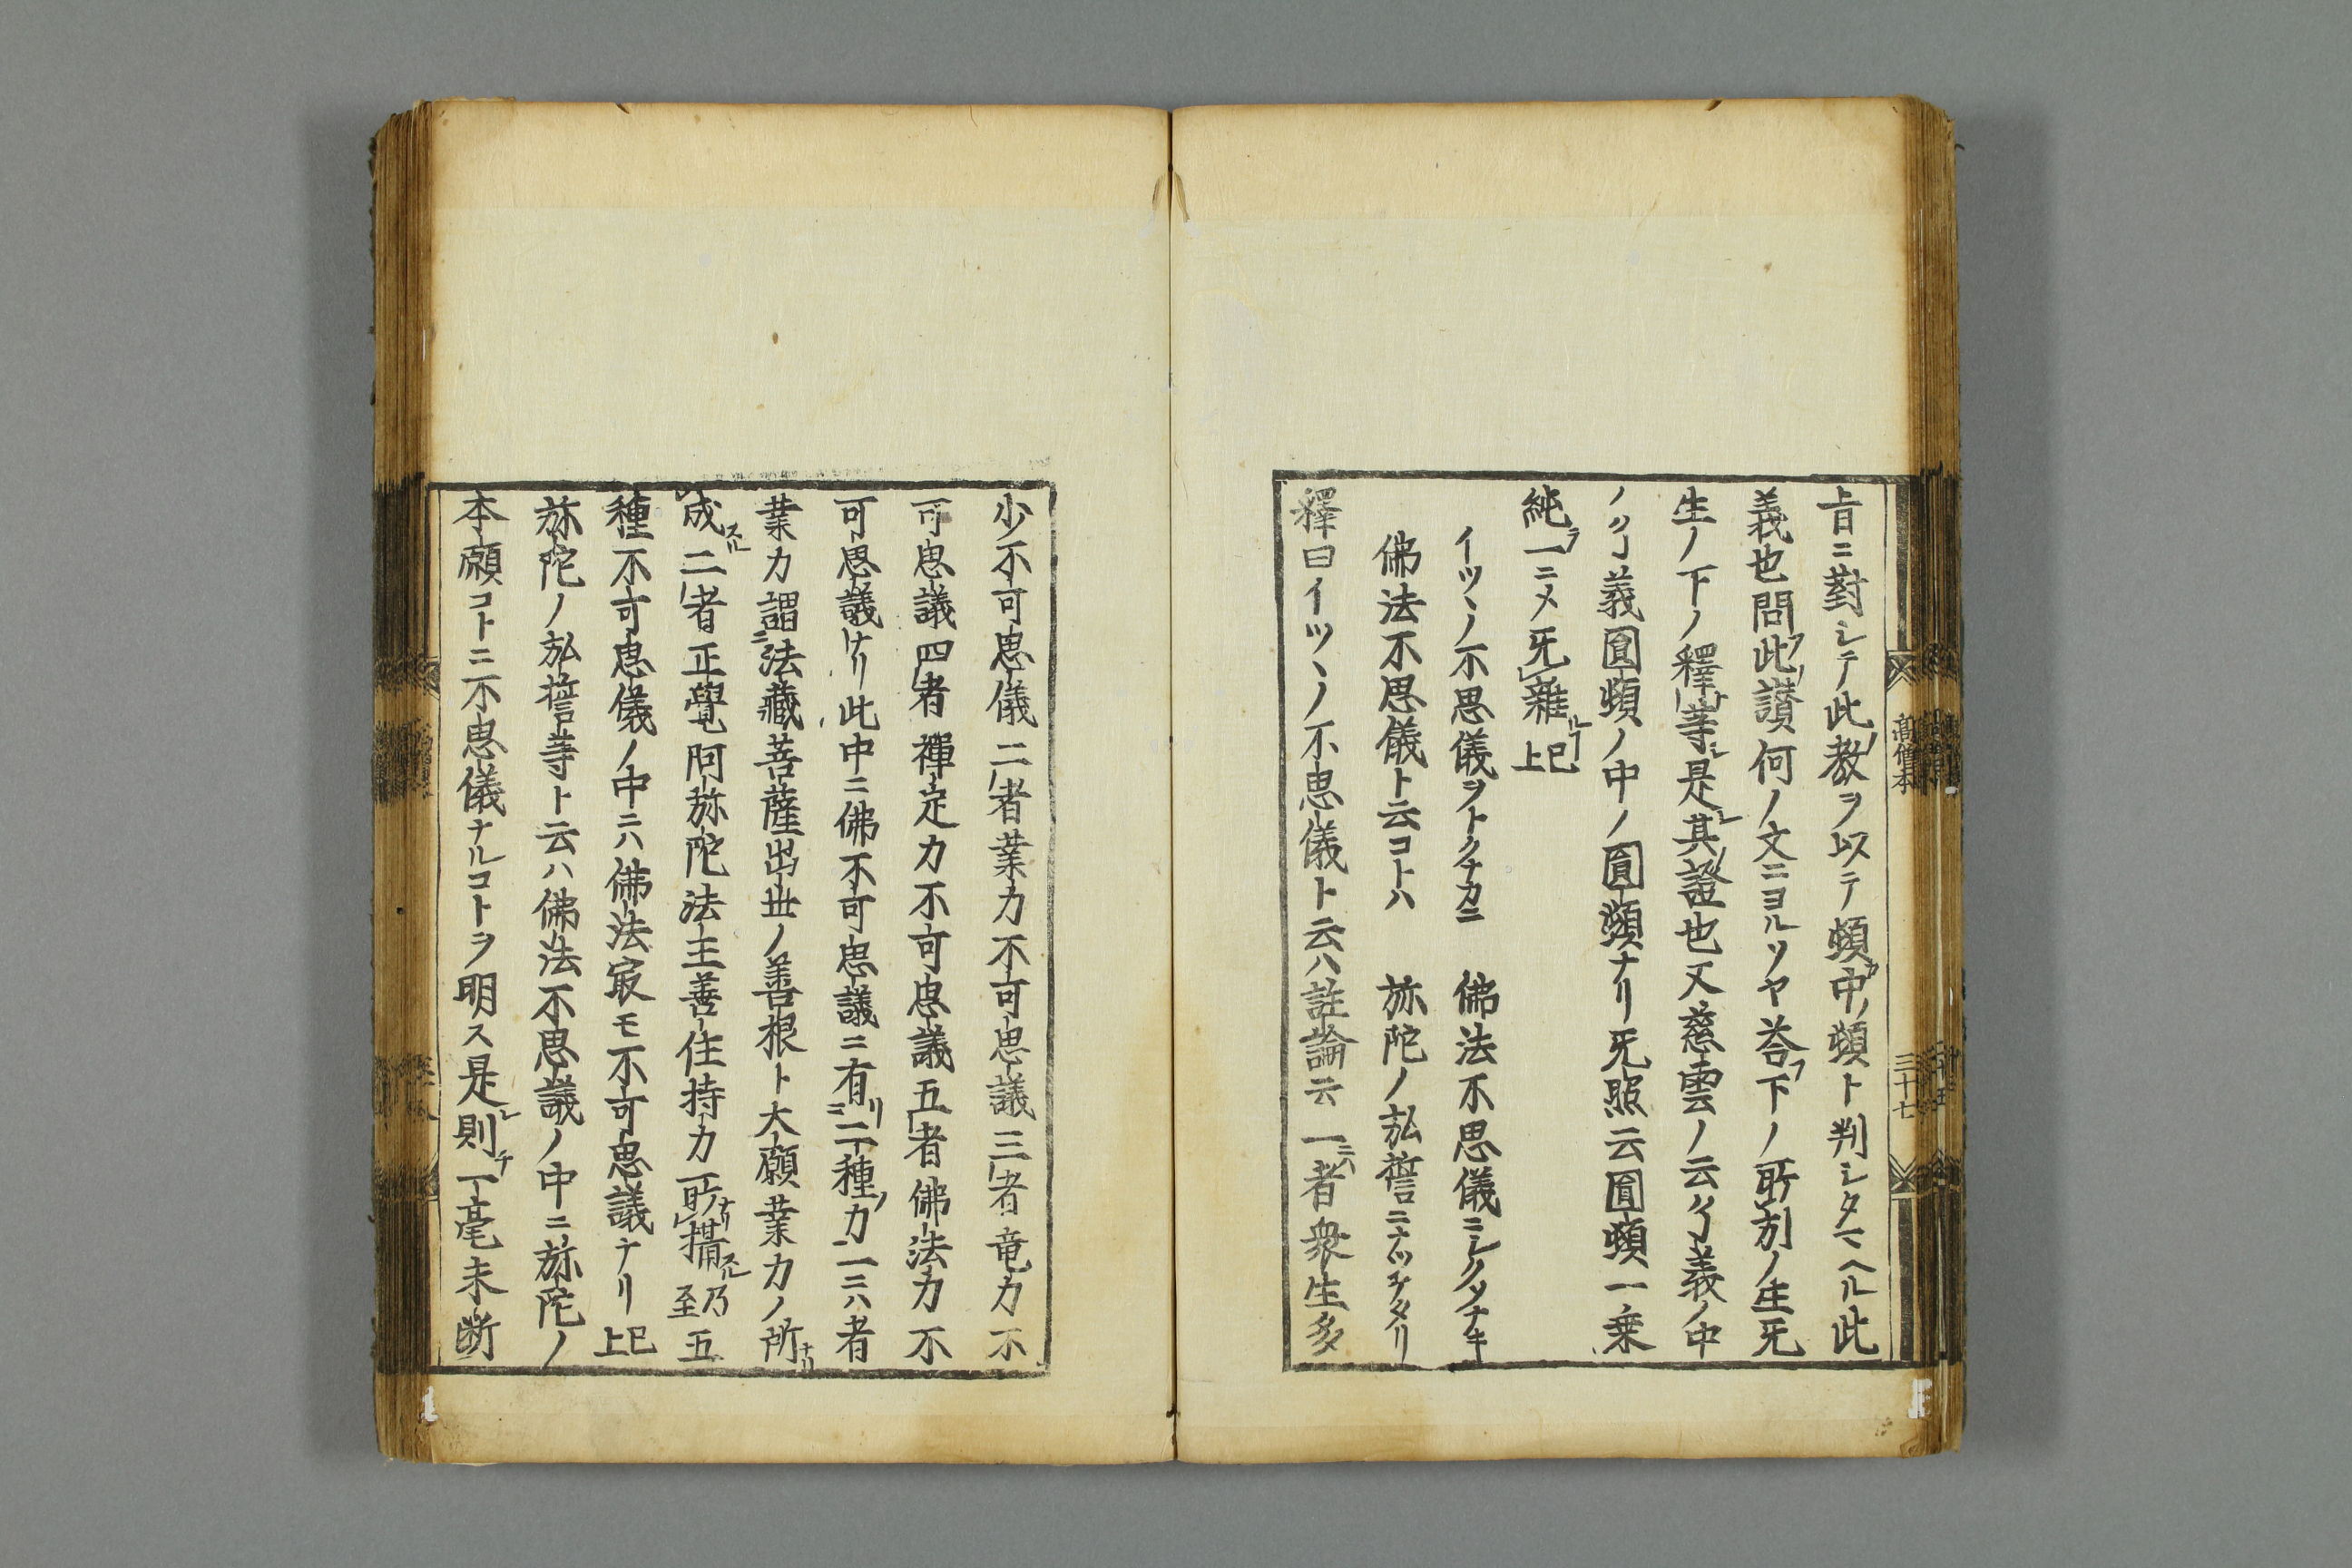 旨ニ對シテ此教ヲ以テ頓中ノ頓ト判シタマヘル此
義也問此讃何ノ文ニヨルソヤ荅下ノ所引ノ生死
生ノ下ノ釋等是其證也又慈雲ノ云ク了義ノ中
ノ了義圓頓ノ中ノ圓頓ナリ元照云圓頓一乗
純一ニメ无雜已上
イツヽノ不思儀ヲトクナカニ 佛法不思儀ニシクソナキ
佛法不思儀ト云コトハ 弥陀ノ弘誓ニナツケタリ
釋曰イツヽノ不思儀ト云ハ註論云一者衆生多
高僧本 三十七
少不可思儀二者業力不可思議三者竜力不
可思議四者禪定力不可思議五者佛法力不
可思議ナリ此中ニ佛不可思議ニ有二種力一ニハ者
業力謂法藏菩薩出世ノ善根ト大願業力ノ所
成二者正覺阿弥陀法主善住持力所攝乃至五
種不可思儀ノ中ニハ佛法最モ不可思議ナリ已上
弥陀ノ弘誓等ト云ハ佛法不思議ノ中ニ弥陀ノ
本願コトニ不思儀ナルコトヲ明ス是則一毫未断